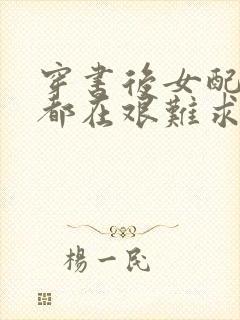 穿書後女配
都在艰難求
楊一民